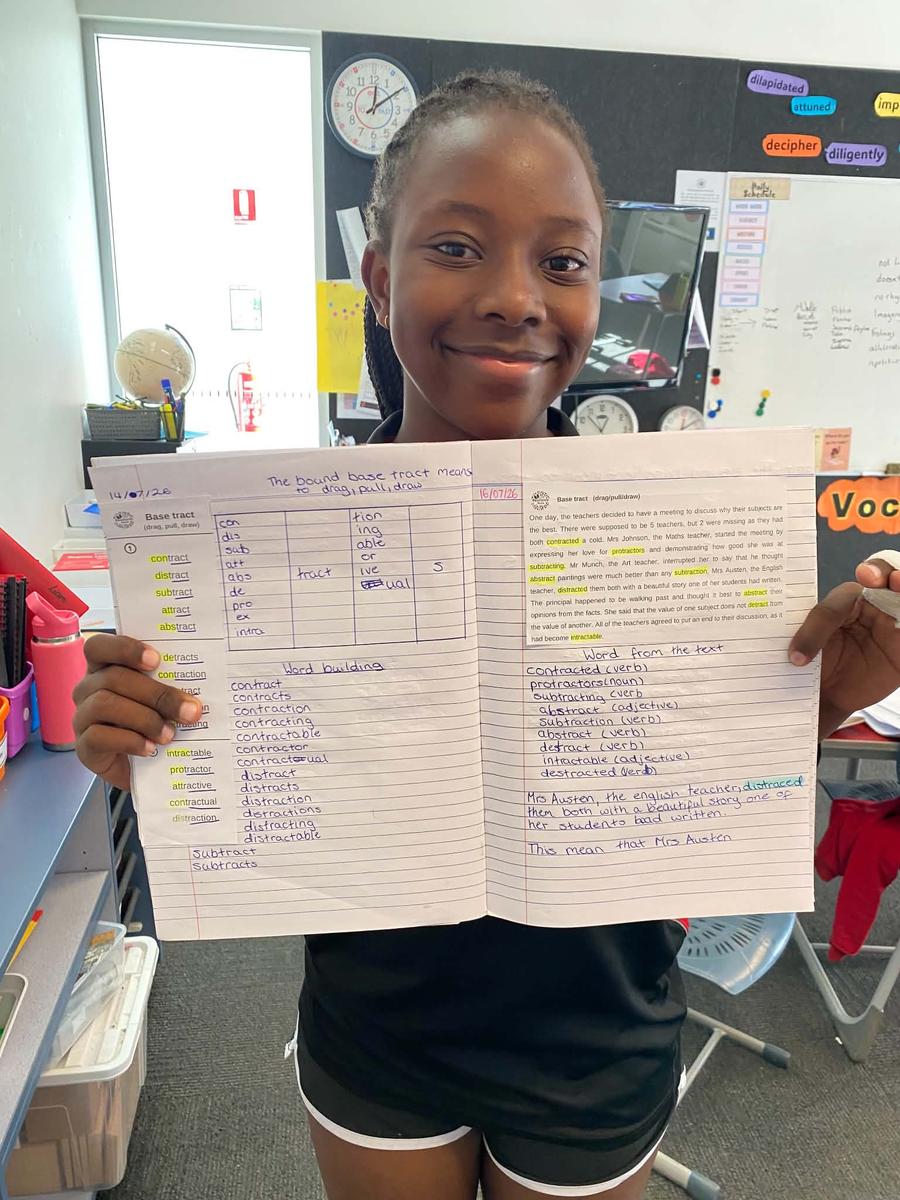 dilapidated
attuned
imp
decipher
diligently
Daily
Schedule
Voc
14/07/26
The bound base tract means
to drag, pull, draw
Base tract
(drag, pull, draw)
1
contract
distract
subtract
attract
abstract
detracts
contraction
intractable
protractor
attractive
contractual
distraction
con
dis
sub
att
abs
de
pro
ex
intra
tract
tion
ing
able
or
ive
ual
s
Word building
contract
contracts
contraction
contracting
contractable
contractor
contractual
distract
distracts
distraction
distractions
distracting
distractable
Subtract
Subtracts
16/07/26
Base tract (drag/pull/draw)
One day, the teachers decided to have a meeting to discuss why their subjects are
the best. There were supposed to be 5 teachers, but 2 were missing as they had
both contracted a cold. Mrs Johnson, the Maths teacher, started the meeting by
expressing her love for protractors and demonstrating how good she was at
subtracting. Mr Munch, the Art teacher, interrupted her to say that he thought
abstract paintings were much better than any subtraction. Mrs Austen, the English
teacher, distracted them both with a beautiful story one of her students had written.
The principal happened to be walking past and thought it best to abstract their
opinions from the facts. She said that the value of one subject does not detract from
the value of another. All of the teachers agreed to put an end to their discussion, as it
had become intractable.
Word from the text
contracted (verb)
protractors(noun)
subtracting (verb
abstract (adjective)
subtraction (verb)
abstract (verb)
detract (verb)
intractable (adjective)
destracted (verb)
Mrs Austen, the english teacher, distraced
them both with a beautiful story one of
her students had written.
This mean that Mrs Austen